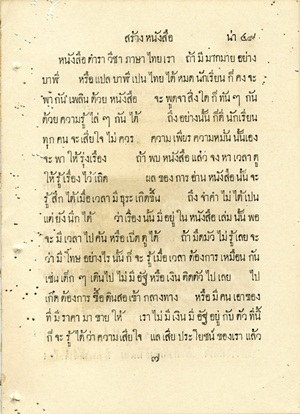 สร้าง หนังสือ น่า ๔๗
หนังสือ ตำรา วิชา ภาษา ไทย เรา ถ้า มี มาก มาย อย่าง
บาพี่ หรือ แปล บาพี่ เปน ไทย ได้ หมด นักเรียน ก็ คง จะ
พา กัน เพลิน ด้วย หนังสือ จะ พูดจา สิ่ง ใด ก็ ทัน ๆ กัน
ด้วย ความ รู้ ไล่ ๆ กัน ได้ ถึง อย่าง นั้น ก็ดี นักเรียน
ทุก คน จะ เสีย ใจ ไม่ ควร ความ เพียร ความ หมั่น นั้น เอง
จะ พา ให้ รุ่งเรื่อง ถ้า พบ หนังสือ แล้ว จง หา เวลา ดู
ให้ รู้ เรื่อง ไว้ เถิด ผล ของ การ อ่าน หนังสือ นั้น จะ
รู้สึก ได้ เมื่อ เวลา มี ธุระ เกิด ขึ้น ถึง จำ คำ ไม่ ได้ เปน
แต่ ยัง นึก ได้ ว่า เรื่อง นั้น มี อยู่ ใน หนังสือ เล่ม นั้น พอ
จะ มี เวลา ไป ค้น หรือ เปิด ดู ได้ ถ้า มืด มัว ไม่ รู้ เลย จะ
ว่า มี โทษ อย่างไร นั้น ก็ จะ รู้ เมื่อ เวลา ต้อง การ เหมือน กัน
เช่น เด็ก ๆ เดิน ไป ไม่ มี อัฐ หรือ เงิน ติด ตัว ไป เลย ไป
เกิด ต้อง การ ซื้อ ดินสอ เข้า กลาง ทาง หรือ มี คน เอา ของ
ที่ มี ราคา มา ขาย ให้ เรา ไม่ มี เงิน มี อัฐ อยู่ กับ ตัว ที่นี้
ก็ จะ รู้ ได้ ว่า ความ เสีย ใจ แล เสีย ประโยชน์ ของ เรา แล้ว
๗